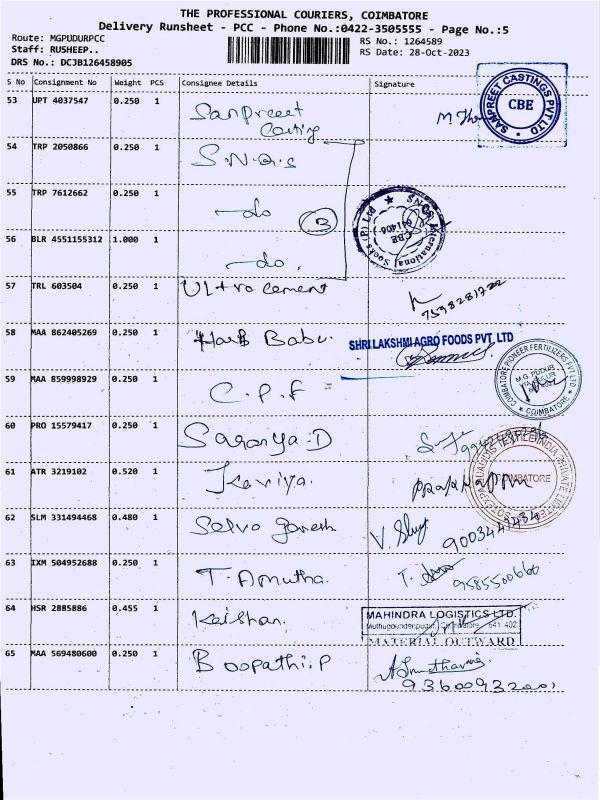 THE PROFESSIONAL COURIERS, COIMBATORE
Delivery Runsheet - PCC - Phone No.:0422-3505555 - Page No.:5
Route: MGPUDURPCC RS No.: 1264589
Staff: RUSHEEP.. RS Date: 28-Oct-2023
DRS No.: DCJB126458905
S No Consignment No Weight PCS Consignee Details Signature
53 UPT 4037547 0.250 1 Sanpreet
Casting
SANPREET CASTINGS PVT LTD
CBE
54 TRP 2050866 0.250 1 S.N.Q.S
55 TRP 7612662 0.250 1 -do 3
SNQS International Socks (P) Ltd
CBE
56 BLR 4551155312 1.000 1 -do.
57 TRL 603504 0.250 1 Ultra cement
7598281722
58 MAA 862405269 0.250 1 Babu.
SHRI LAKSHMI AGRO FOODS PVT. LTD
59 MAA 859998929 0.250 1 C.P.F
COIMBATORE PIONEER FERTILIZERS PVT LTD
M.G. PUDUR
COIMBATORE
60 PRO 15579417 0.250 1 Saranya.D
61 ATR 3219102 0.520 1 Kaviya.
COIMBATORE
62 SLM 331494468 0.480 1 Selva ganesh
V.
63 IXM 504952688 0.250 1 T. Amutha.
T. 9585500660
64 HSR 2885886 0.455 1 Kaishan.
MAHINDRA LOGISTICS LTD.
Coimbatore - 641 402
MATERIAL OUTWARD
65 MAA 569480600 0.250 1 Boopathi.P